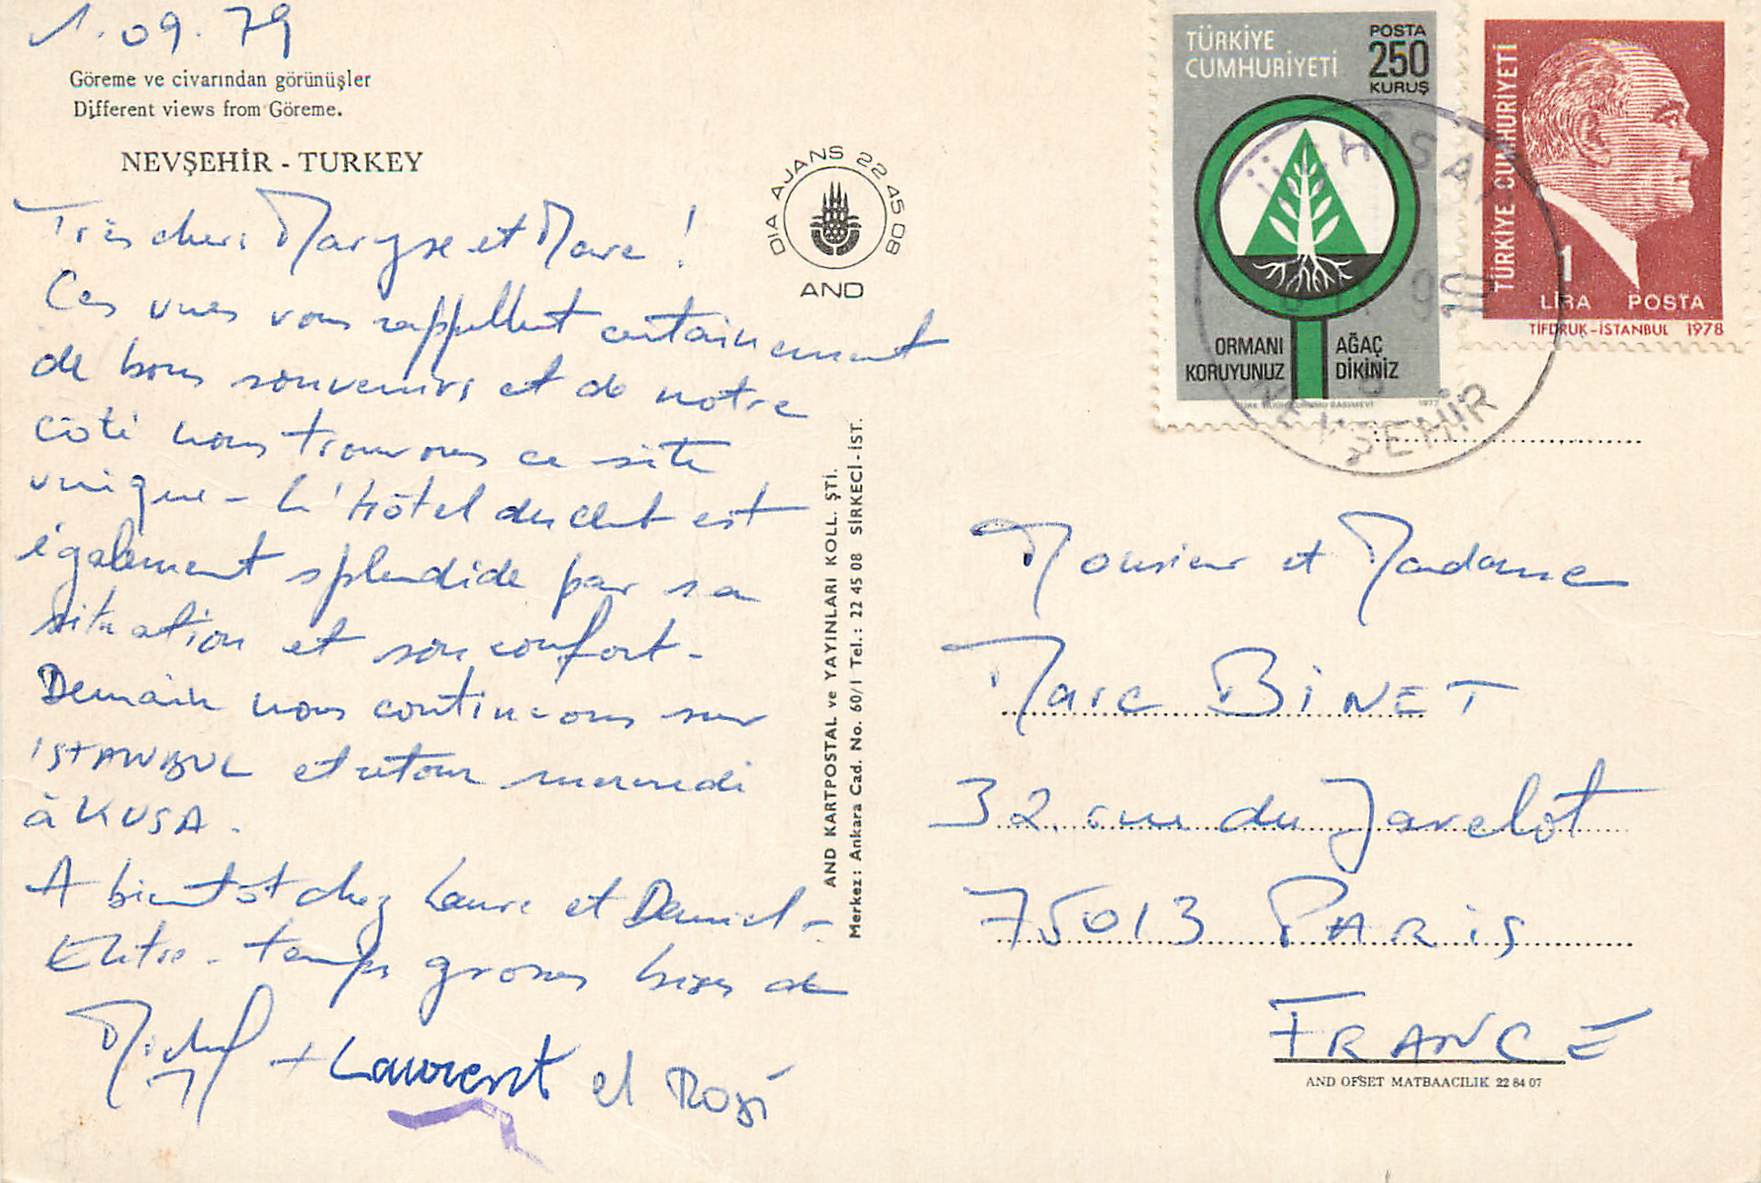 1.09.79
Göreme ve civarından görünüşler
Different views from Göreme.
NEVŞEHİR - TURKEY
Très chers Maryse et Marc !
Ces vues vous rappellent certainement
de bons souvenirs et de notre
côté nous trouvons ce site
unique - L'Hôtel du club est
également splendide par sa
situation et son confort -
Demain nous continuons sur
ISTANBUL et retour mercredi
à KUSA.
A bientôt chez Laure et Daniel -
Entre-temps grosses bises de
Michel + Laurent et Rosi
DIA AJANS 22 45 08
AND
AND KARTPOSTAL ve YAYINLARI KOLL. ŞTİ.
Merkez: Ankara Cad. No. 60/1 Tel.: 22 45 08 SİRKECİ-İST.
TÜRKİYE
CUMHURİYETİ
POSTA
250
KURUŞ
ORMANI
KORUYUNUZ
AĞAÇ
DİKİNİZ
1977
TÜRKİYE CUMHURİYETİ
1
LİRA POSTA
TİFDRUK-İSTANBUL 1978
ÜÇHİSAR
NEVŞEHİR
Monsieur et Madame
Marc BINET
32 rue du Javelot
75013 PARIS
FRANCE
AND OFSET MATBAACILIK 22 84 07